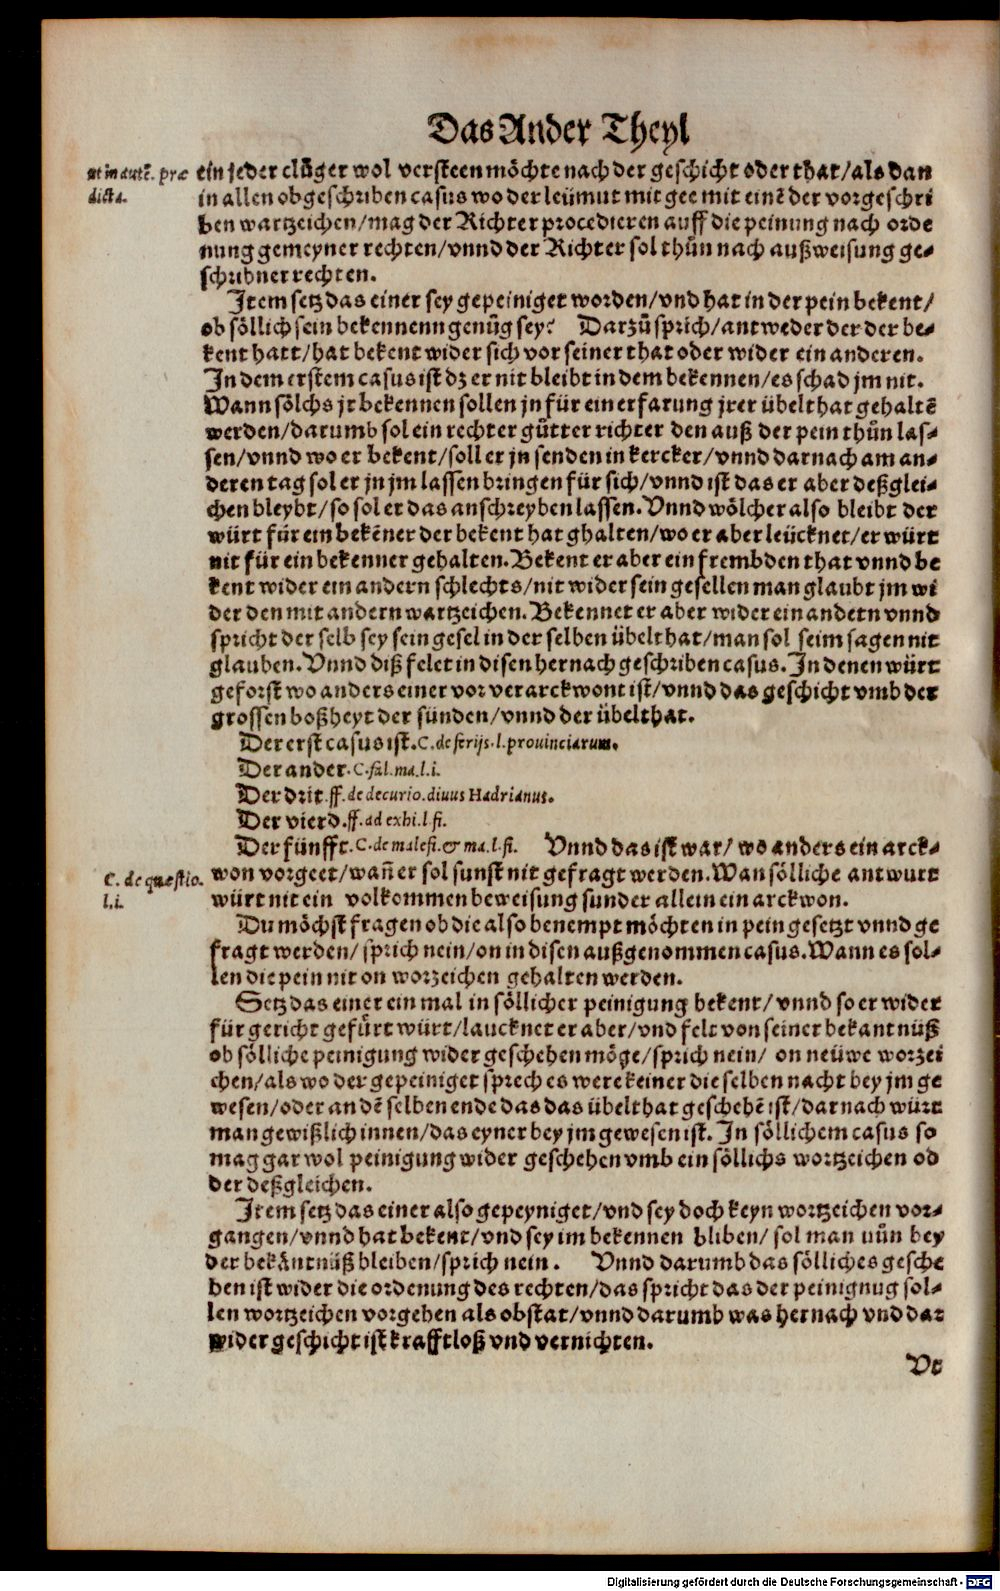 Das Ander Theyl
ut in autē. præ
dicta.
ein jeder clůger wol versteen möchte nach der geschicht oder that/als dan
in allen obgeschriben casus wo der leümut mit gee mit einē der vorgeschri
ben wartzeichen/mag der Richter procedieren auff die peinung nach orde
nung gemeyner rechten/vnnd der Richter sol thůn nach außweisung ge-
schribner rechten.
Item setz das einer sey gepeiniget worden/vnd hat in der pein bekent/
ob söllich sein bekennenn genůg sey? Darzů sprich/antweder der der be-
kent hatt/hat bekent wider sich vor seiner that oder wider ein anderen.
In dem erstem casus ist dz er nit bleibt in dem bekennen/es schad jm nit.
Wann sölchs jr bekennen sollen jn für ein erfarung jrer übelthat gehaltē
werden/darumb sol ein rechter gůtter richter den auß der pein thůn las-
sen/vnnd wo er bekent/soll er jn senden in kercker/vnnd darnach am an-
deren tag sol er jn jm lassen bringen für sich/vnnd ist das er aber deßglei-
chen bleybt/so sol er das anschreyben lassen. Vnnd wölcher also bleibt der
würt für ein bekēner der bekent hat ghalten/wo er aber leücknet/er würt
nit für ein bekenner gehalten. Bekent er aber ein frembden that vnnd be
kent wider ein andern schlechts/nit wider sein gesellen man glaubt jm wi
der den mit andern wartzeichen. Bekennet er aber wider ein andern vnnd
spricht der selb sey sein gesel in der selben übelthat/man sol seim sagen nit
glauben. Vnnd diß felet in disen hernach geschriben casus. In denen würt
geforst wo anders einer vor verarckwont ist/vnnd das geschicht vmb der
grossen boßheyt der sünden/vnnd der übelthat.
Der erst casus ist. C. de ferijs. l. prouinciarum.
Der ander. C. fal. ma. l. i.
Der drit. ff. de decurio. diuus Hadrianus.
Der vierd. ff. ad exhi. l. fi.
Der fünfft. C. de malefi. & ma. l. fi. Vnnd das ist war/ wo anders ein arck-
C. de quæstio.
l. i.
won vorgeet/wañ er sol sunst nit gefragt werden. Wan sölliche antwurt
würt nit ein volkommen beweisung sunder allein ein arckwon.
Du möchst fragen ob die also benempt möchten in pein gesetzt vnnd ge
fragt werden/ sprich nein/on in disen außgenommen casus. Wann es sol-
len die pein nit on worzeichen gehalten werden.
Setz das einer ein mal in söllicher peinigung bekent/ vnnd so er wider
für gericht gefůrt würt/laucknet er aber/vnd felt von seiner bekantnüß
ob sölliche peinigung wider geschehen möge/sprich nein/ on neüwe worzei
chen/als wo der gepeiniget sprech es were keiner die selben nacht bey jm ge
wesen/oder an dē selben ende das das übelthat geschehē ist/darnach würt
man gewißlich innen/das eyner bey jm gewesen ist. In söllichem casus so
mag gar wol peinigung wider geschehen vmb ein söllichs wortzeichen od
der deßgleichen.
Item setz das einer also gepeyniget/vnd sey doch keyn wortzeichen vor-
gangen/vnnd hat bekent/vnd sey im bekennen bliben/ sol man nůn bey
der bekäntnüß bleiben/sprich nein. Vnnd darumb das sölliches gesche
hen ist wider die ordenung des rechten/das spricht das der peinignug sol-
len wortzeichen vorgehen als obstat/vnnd darumb was hernach vnd dar
wider geschicht ist krafftloß vnd vernichten.
Vt
Digitalisierung gefördert durch die Deutsche Forschungsgemeinschaft - DFG